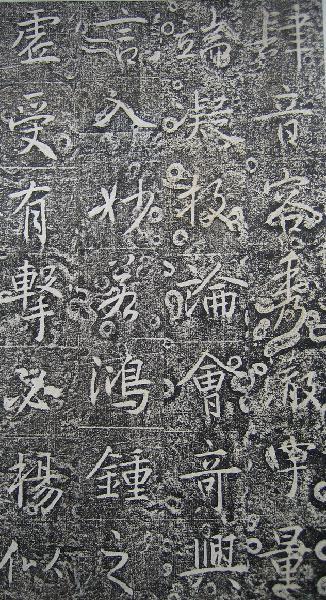 肆音容秀澈宇量
端凝論會奇興
言入妙若鴻鍾之
虛受有擊必揚似